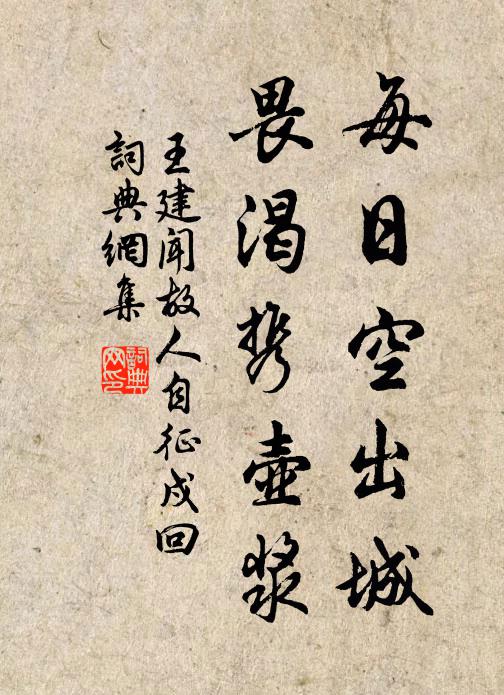 每日空出城
畏渴携壺漿
王建聞故人自征戍回
詞典網集
詞典
網印